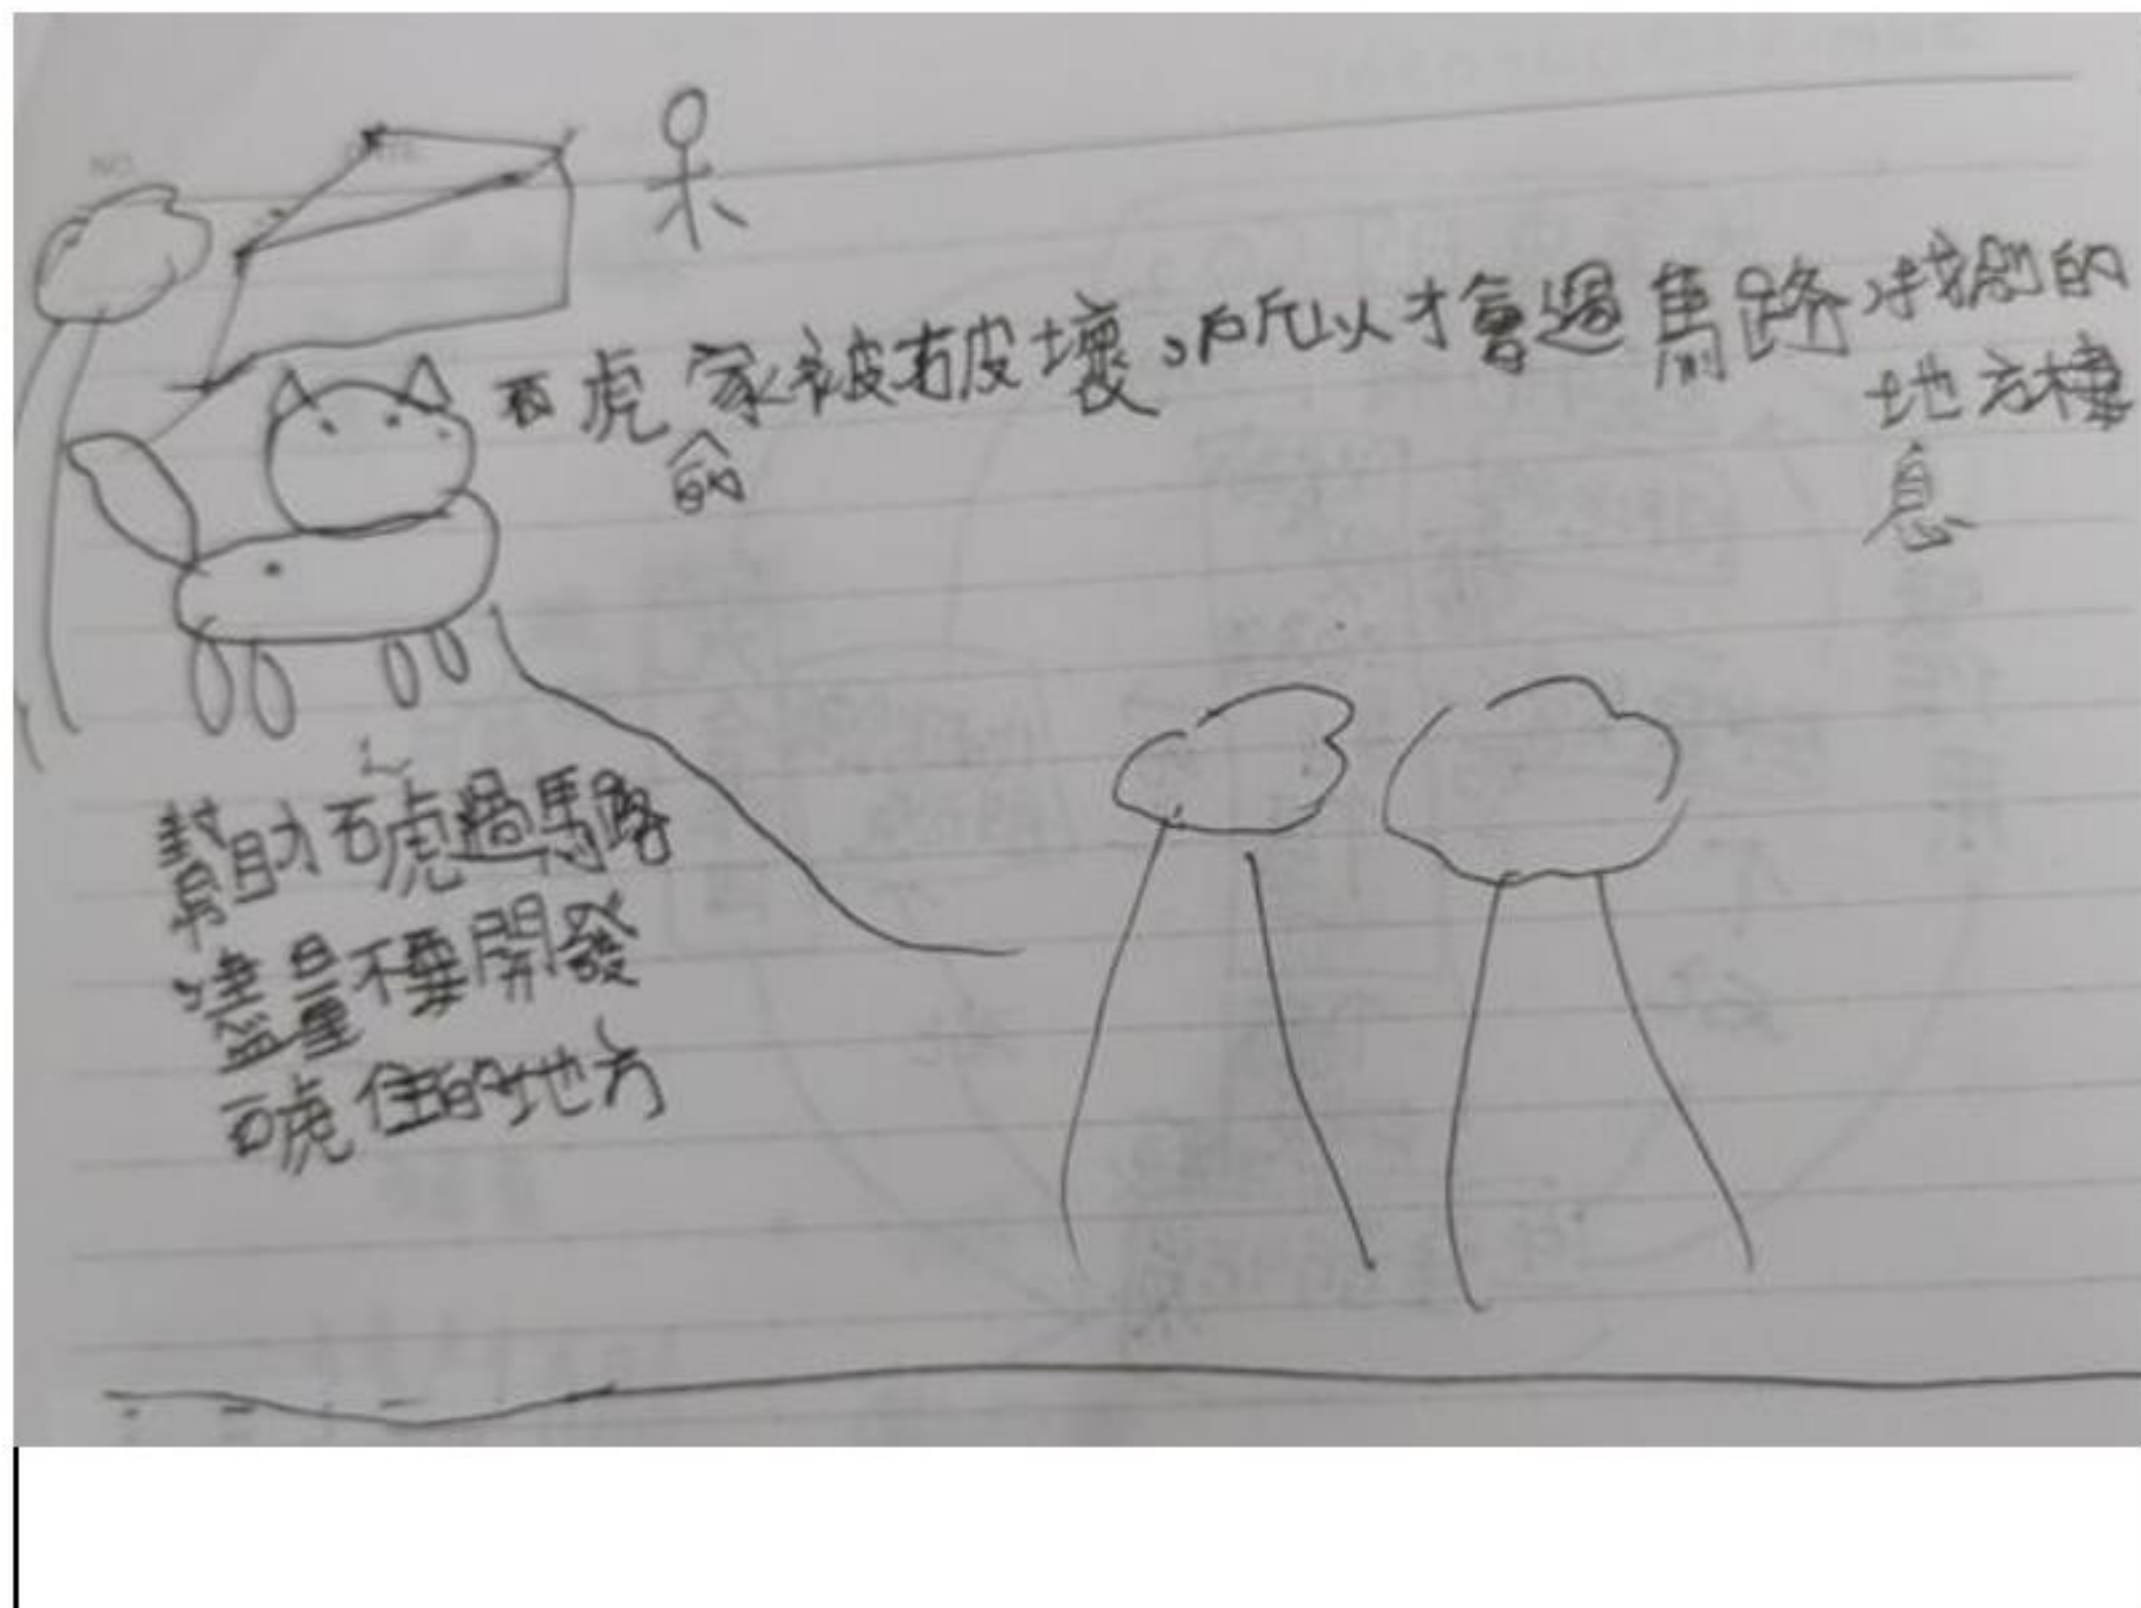 石虎的家被破壞,所以才會過馬路,找別的
地方棲
息
幫助石虎過馬路
儘量不要開發
石虎住的地方